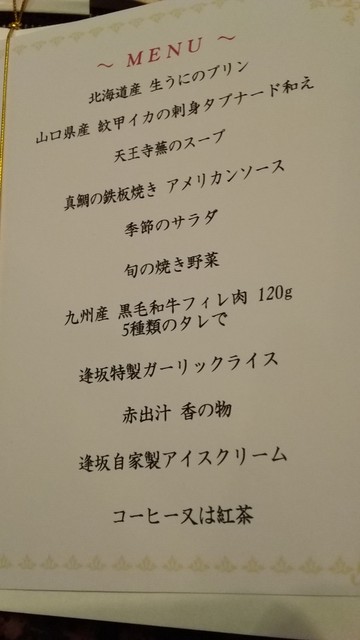 ～ MENU ～
北海道産 生うにのプリン
山口県産 紋甲イカの刺身タプナード和え
天王寺蕪のスープ
真鯛の鉄板焼き アメリカンソース
季節のサラダ
旬の焼き野菜
九州産 黒毛和牛フィレ肉 120g
5種類のタレで
逢坂特製ガーリックライス
赤出汁 香の物
逢坂自家製アイスクリーム
コーヒー又は紅茶